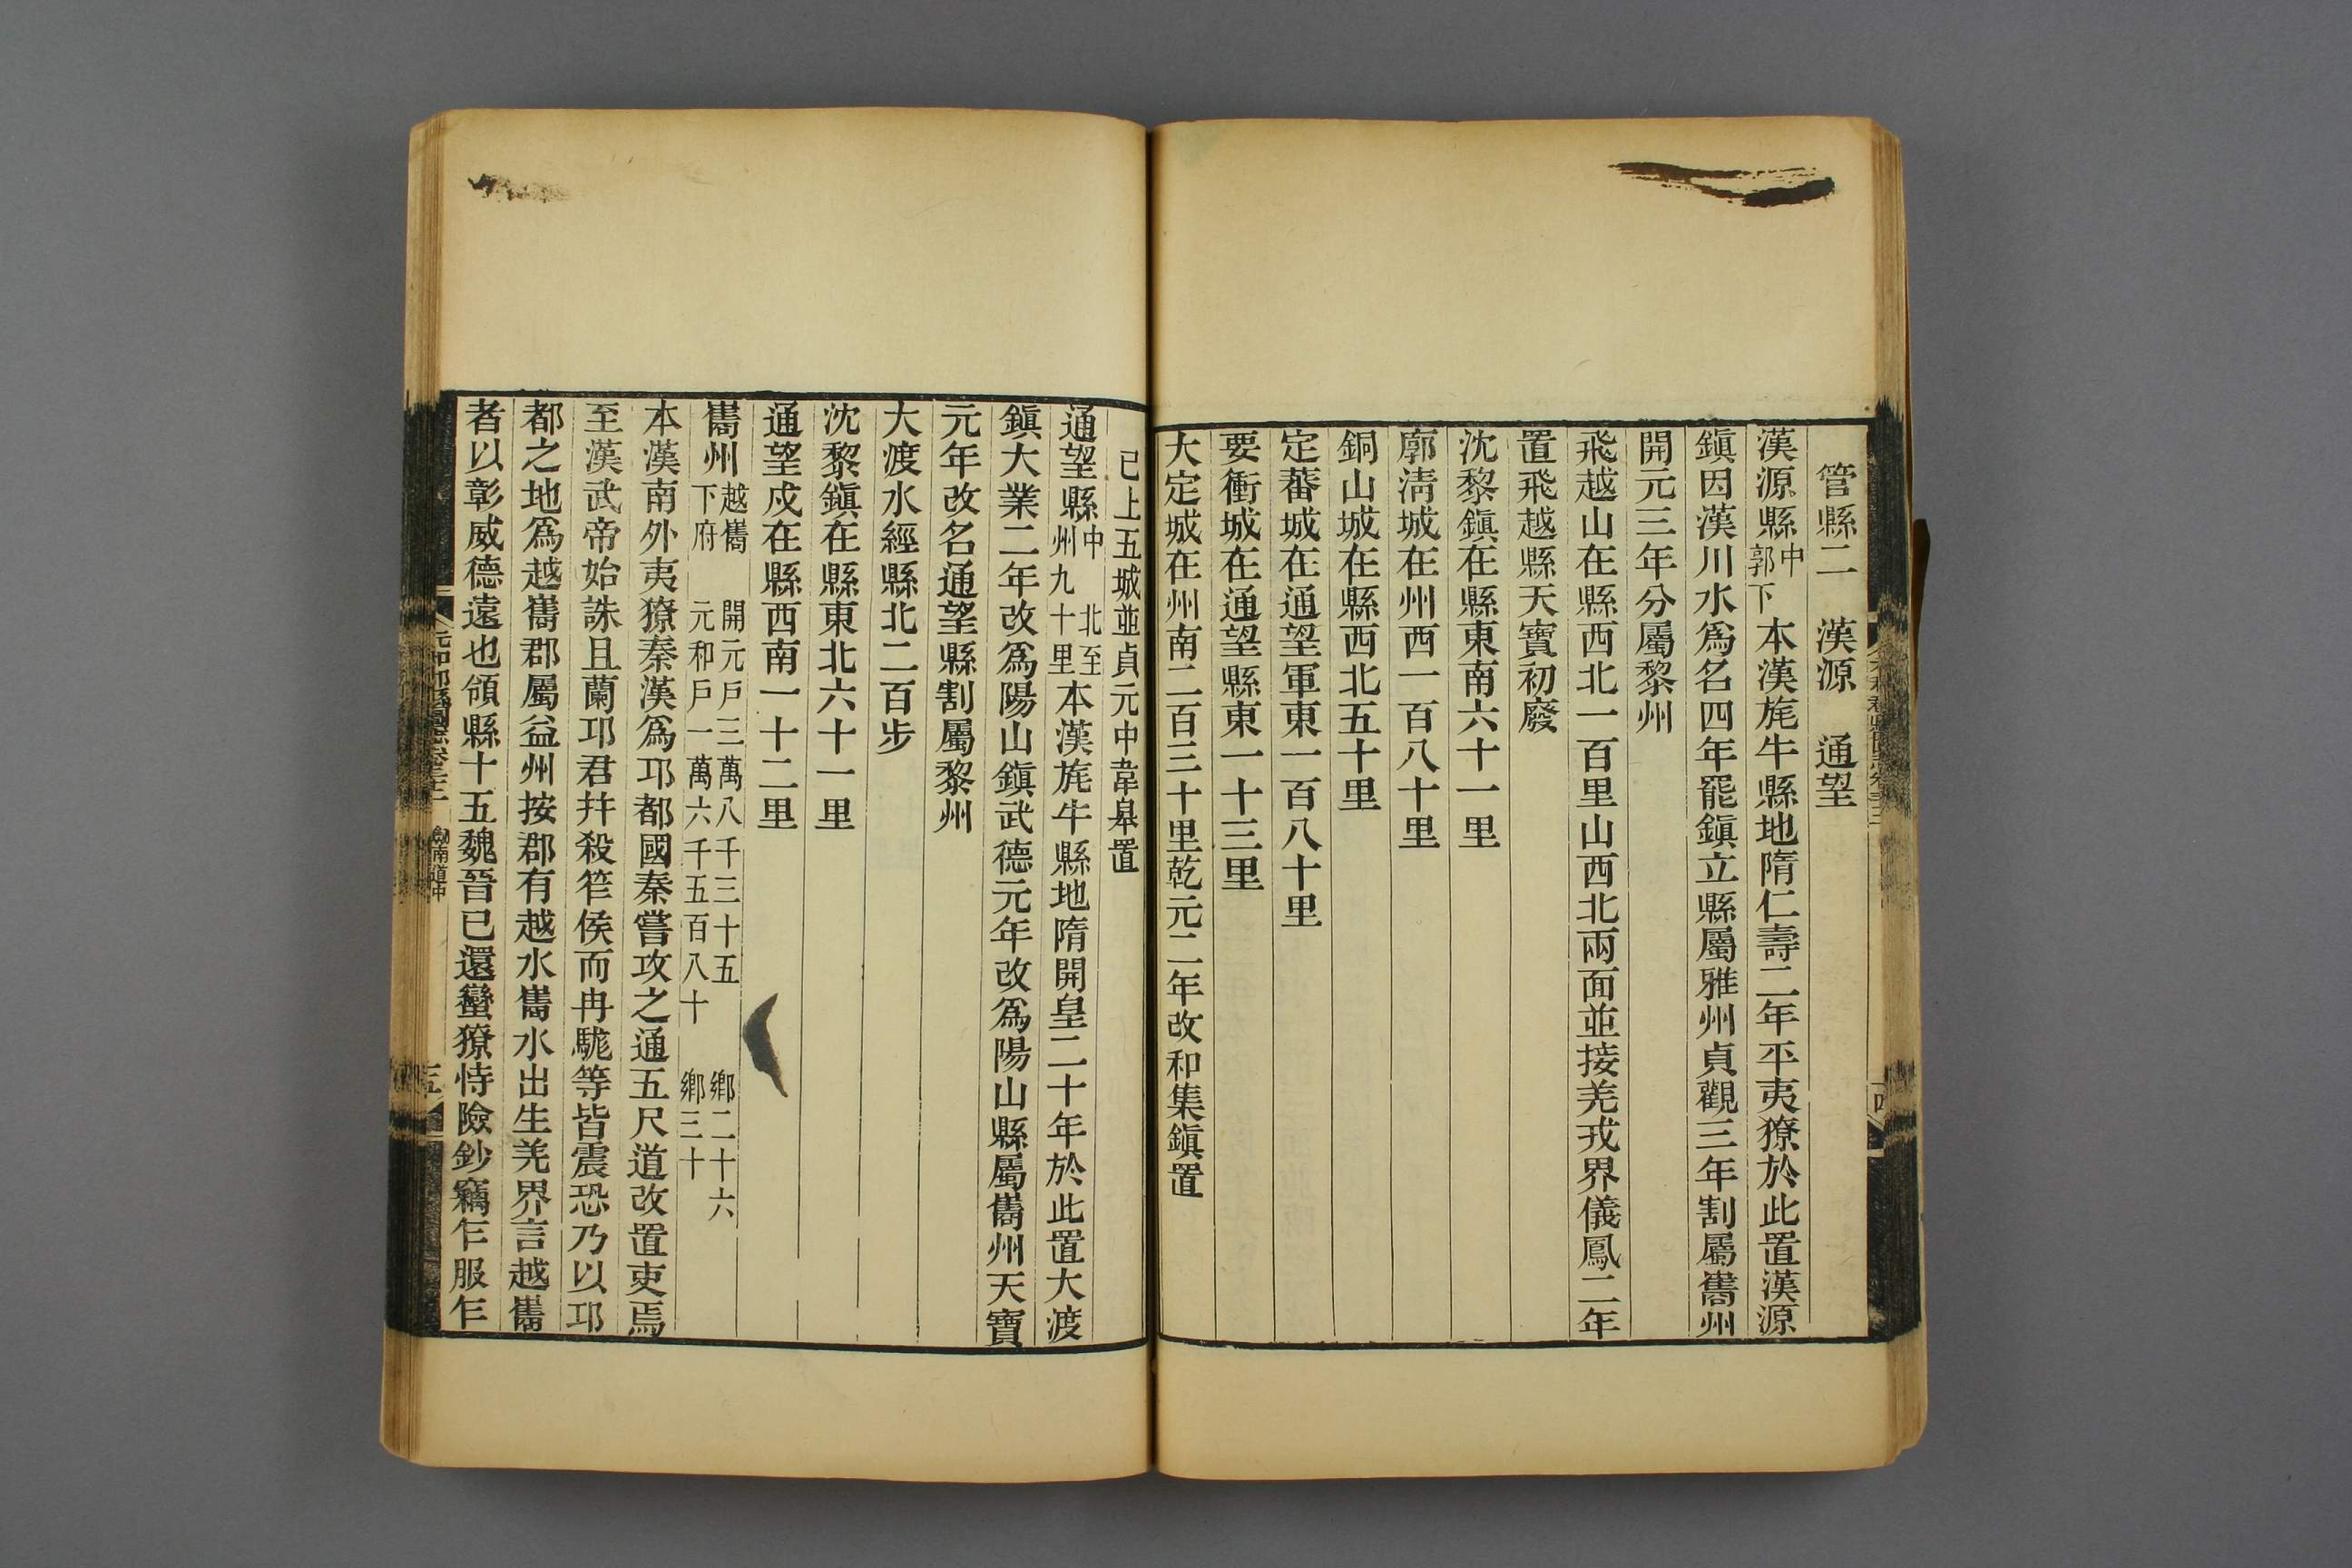 管縣二　漢源　通望
漢源縣中郭下　本漢旄牛縣地隋仁壽二年平夷獠於此置漢源
鎮因漢川水爲名四年罷鎮立縣屬雅州貞觀三年割屬巂州
開元三年分屬黎州
飛越山在縣西北一百里山西北兩面並接羌戎界儀鳳二年
置飛越縣天寶初廢
沈黎鎮在縣東南六十一里
廓清城在州西一百八十里
銅山城在縣西北五十里
定蕃城在通望軍東一百八十里
要衝城在通望縣東一十三里
大定城在州南二百三十里乾元二年改和集鎮置
已上五城並貞元中韋皋置
通望縣中　北至州九十里本漢旄牛縣地隋開皇二十年於此置大渡
鎮大業二年改爲陽山鎮武德元年改爲陽山縣屬巂州天寶
元年改名通望縣割屬黎州
大渡水經縣北二百步
沈黎鎮在縣東北六十一里
通望戍在縣西南一十二里
巂州越巂下府　開元戸三萬八千三十五　鄉二十六　元和戸一萬六千五百八十　鄉三十
本漢南外夷獠秦漢爲邛都國秦嘗攻之通五尺道改置吏焉
至漢武帝始誅且蘭邛君幷殺筰侯而冉駹等皆震恐乃以邛
都之地爲越巂郡屬益州按郡有越水巂水出生羌界言越巂
者以彰威德遠也領縣十五魏晉已還蠻獠恃險鈔竊乍服乍
元和郡縣圖志卷三十二　劍南道中　五
四